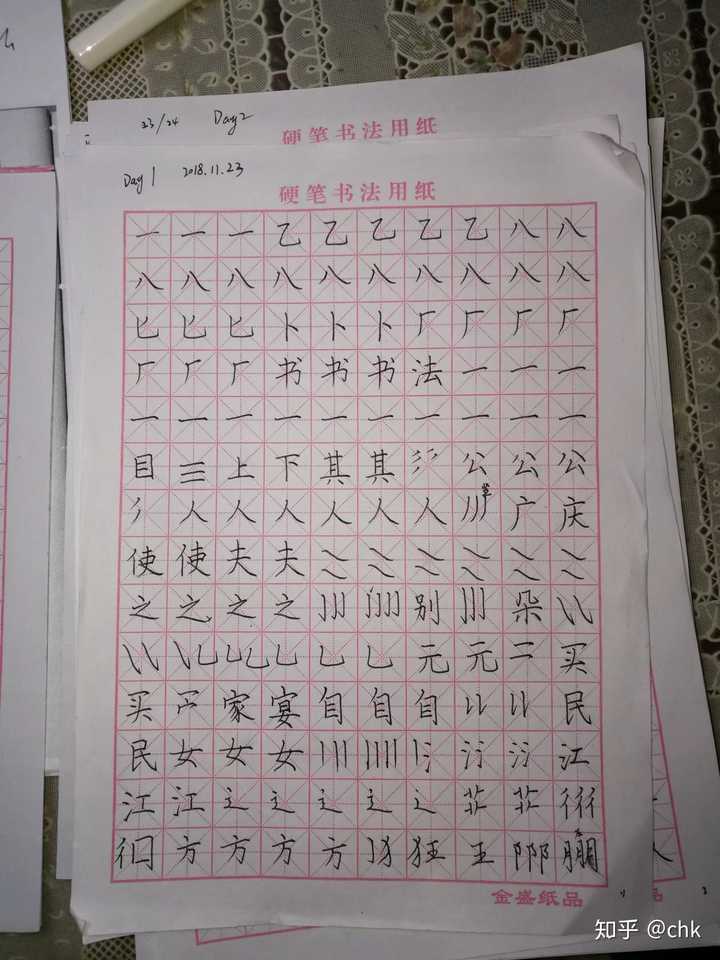 23/24 Day2
硬笔书法用纸
Day 1 2018.11.23
硬笔书法用纸
一 一 一 乙 乙 乙 乙 乙 八 八
八 八 八 八 八 八 八 八 八 八
匕 匕 匕 卜 卜 卜 厂 厂 厂 厂
厂 厂 厂 书 书 书 法 一 一 一
一 一 一 一 一 一 一 一 一 一
目 三 上 下 其 其 公 公 公
人 人 人 人 人 人 广 庆
使 使 夫 夫
之 之 之 之 别 朵
元 元 二 买
买 家 宴 自 自 自 民
民 女 女 女 江
江 江
方 方 方 方 狂 王
金盛纸品
品
知乎 @chk